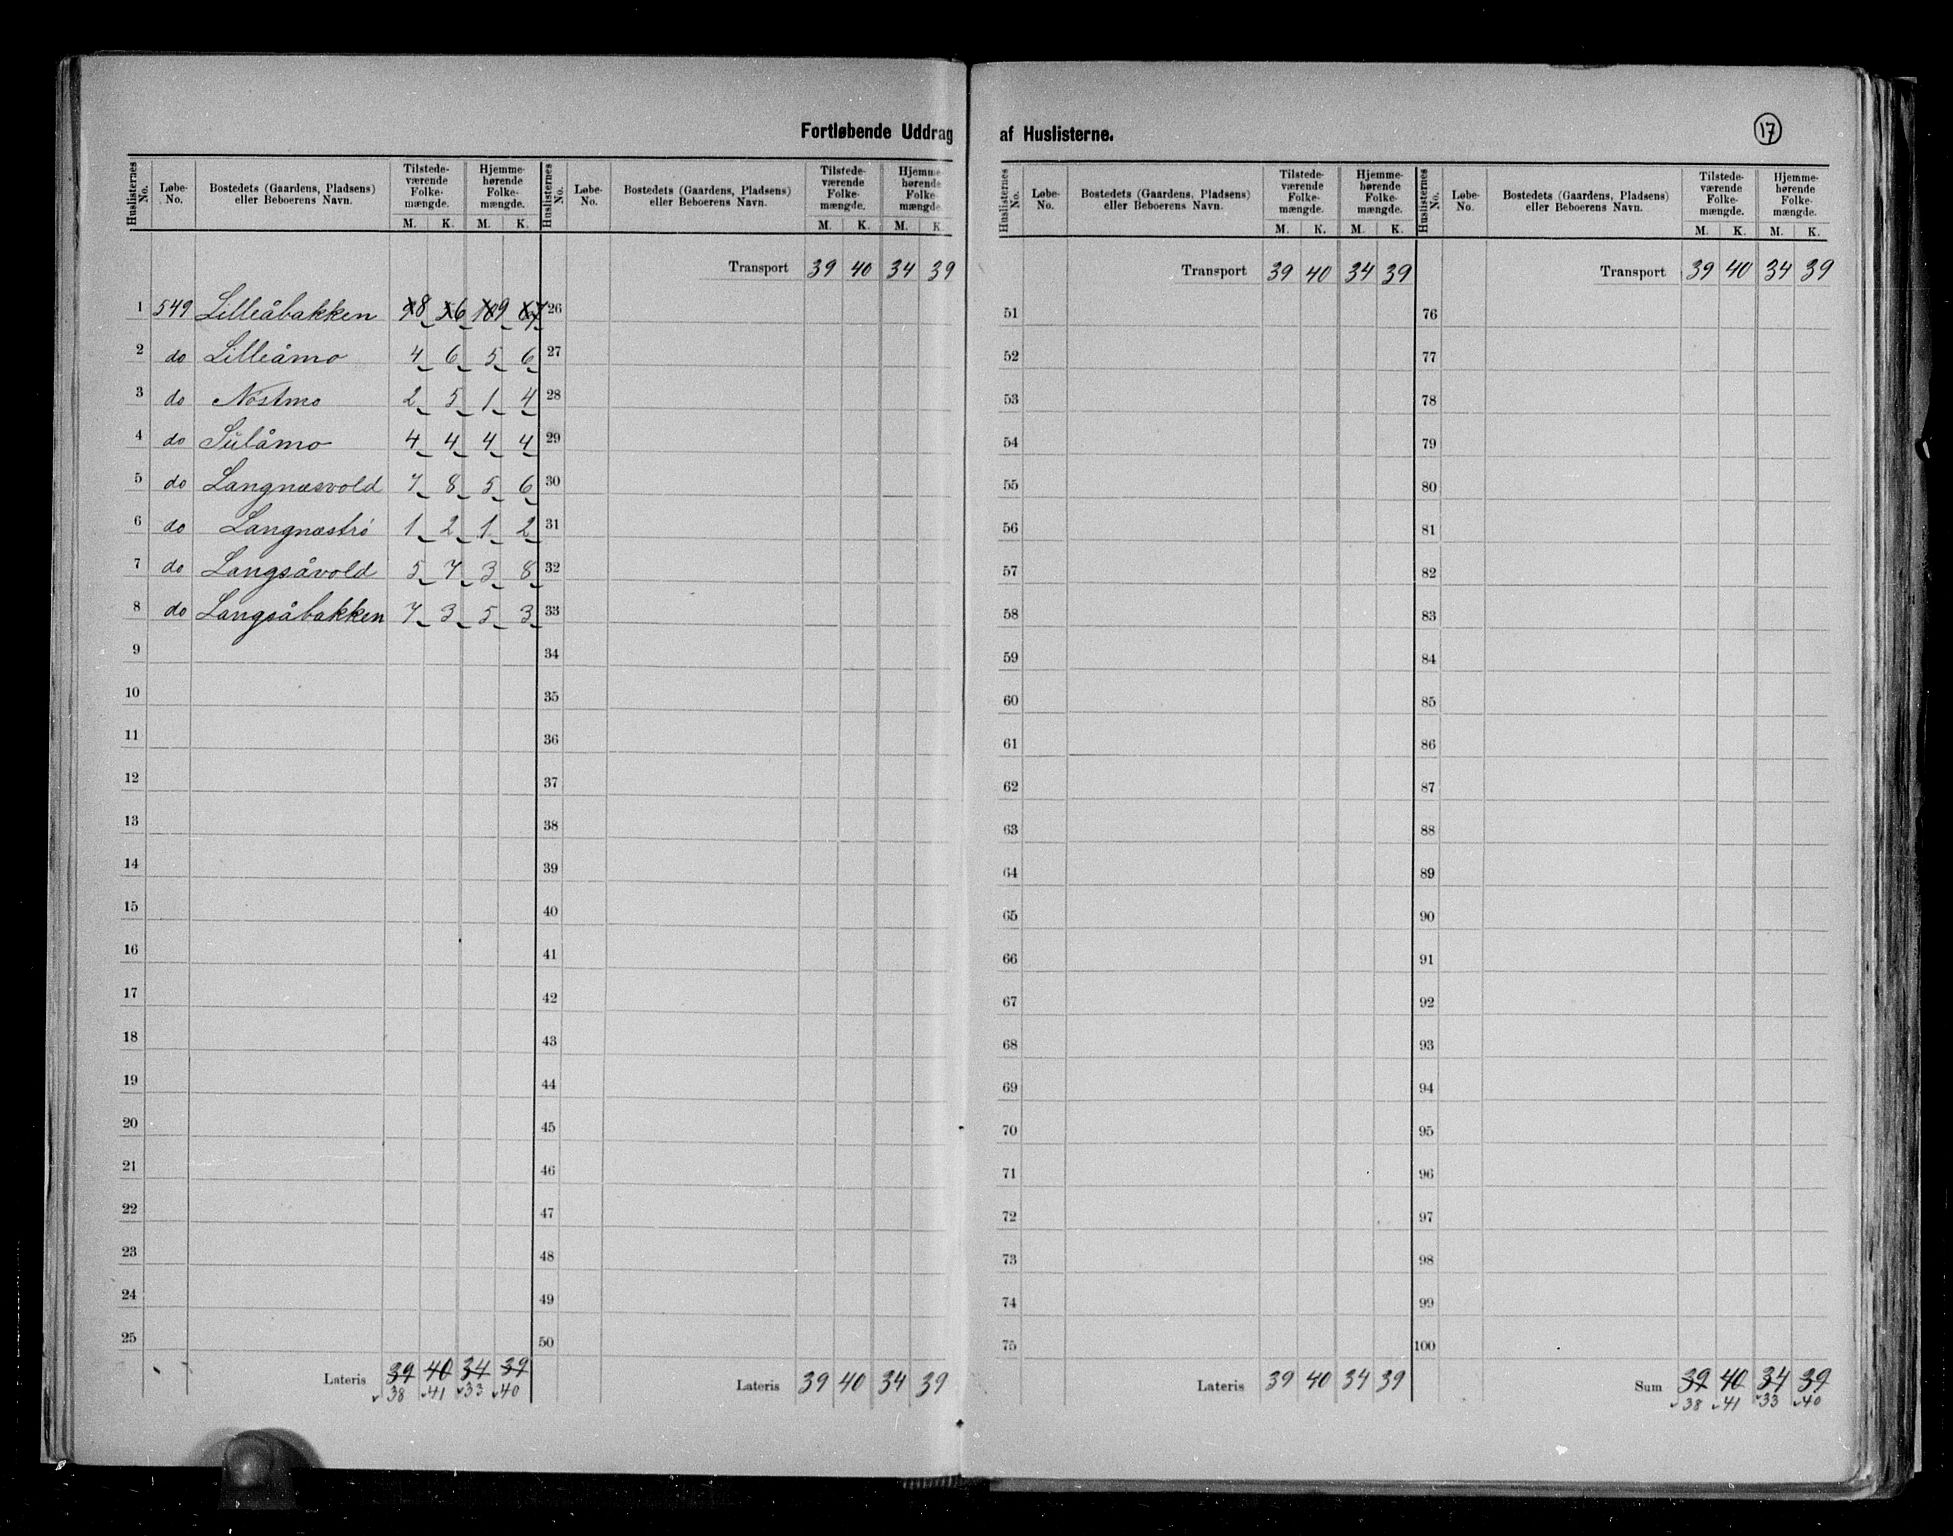 Fortløbende Uddrag af Huslisterne. 17
Huslisternes No. Løbe-No. Bostedets (Gaardens, Pladsens) eller Beboerens Navn. Tilstede-værende Folke-mængde. M. K. Hjemme-hørende Folke-mængde. M. K.
1 549 Lilleåbakken 9 8 5 6 10 9 6 7
2 do Lilleåmo 4 6 5 6
3 do Nostmo 2 5 1 4
4 do Sulåmo 4 4 4 4
5 do Langnæsvold 7 8 5 6
6 do Langnæstrø 1 2 1 2
7 do Langsåvold 5 7 3 8
8 do Langsåbakken 7 3 5 3
9
10
11
12
13
14
15
16
17
18
19
20
21
22
23
24
25
Lateris 39 40 34 39
38 41 33 40
Huslisternes No. Løbe-No. Bostedets (Gaardens, Pladsens) eller Beboerens Navn. Tilstede-værende Folke-mængde. M. K. Hjemme-hørende Folke-mængde. M. K.
Transport 39 40 34 39
26
27
28
29
30
31
32
33
34
35
36
37
38
39
40
41
42
43
44
45
46
47
48
49
50
Lateris 39 40 34 39
Huslisternes No. Løbe-No. Bostedets (Gaardens, Pladsens) eller Beboerens Navn. Tilstede-værende Folke-mængde. M. K. Hjemme-hørende Folke-mængde. M. K.
Transport 39 40 34 39
51
52
53
54
55
56
57
58
59
60
61
62
63
64
65
66
67
68
69
70
71
72
73
74
75
Lateris 39 40 34 39
Huslisternes No. Løbe-No. Bostedets (Gaardens, Pladsens) eller Beboerens Navn. Tilstede-værende Folke-mængde. M. K. Hjemme-hørende Folke-mængde. M. K.
Transport 39 40 34 39
76
77
78
79
80
81
82
83
84
85
86
87
88
89
90
91
92
93
94
95
96
97
98
99
100
Sum 39 40 34 39
38 41 33 40